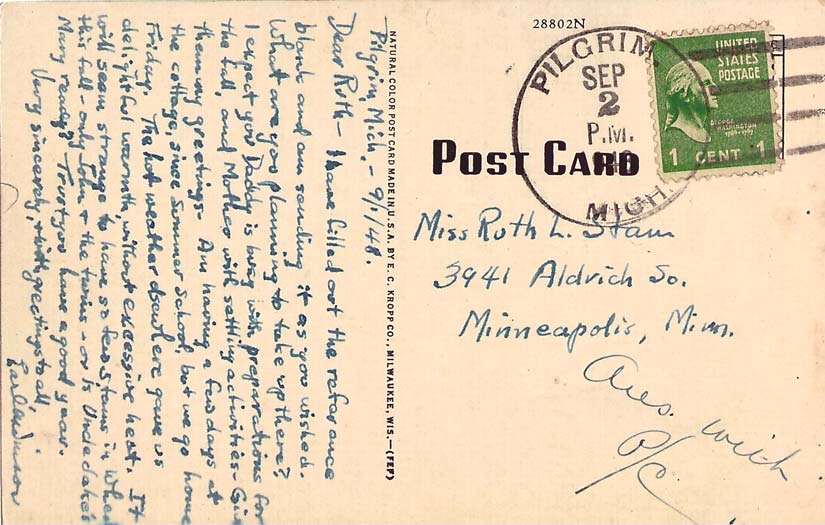 Pilgrim, Mich. - 9/1/48.
Dear Ruth - I have filled out the reference
blank and am sending it as you wished.
What are you planning to take up there?
I expect you Daddy is busy with preparations for
the fall, and Mother with settling activities - Give
them my greetings. Am having a few days at
the cottage, since Summer School, but we go home
Friday. The hot weather elsewhere gave us
delightful warmth, without excessive heat. It
will seem strange to have so few Stams in
this fall - only John & the twins - or is
Mary ready? Trust you have a good year.
Very sincerely, & with greetings to all,
NATURAL COLOR POST CARD MADE IN U.S.A. BY E. C. KROPP CO., MILWAUKEE, WIS.—(FEP)
28802N
PILGRIM
SEP
2
P.M.
MICH.
UNITED
STATES
POSTAGE
GEORGE
WASHINGTON
1 CENT 1
POST CARD
Miss Ruth L. Stam
3941 Aldrich So.
Minneapolis, Minn.
Ans. with
P/C